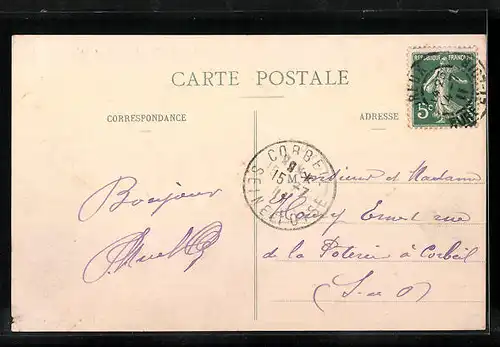 CARTE POSTALE
CORRESPONDANCE
ADRESSE
REPUBLIQUE FRANÇAISE
5c
CORBEIL
15
SEINE-ET-OISE
Bonjour
Monsieur et Madame
Ernest rue
de la Poterie à Corbeil
(S-et-O)